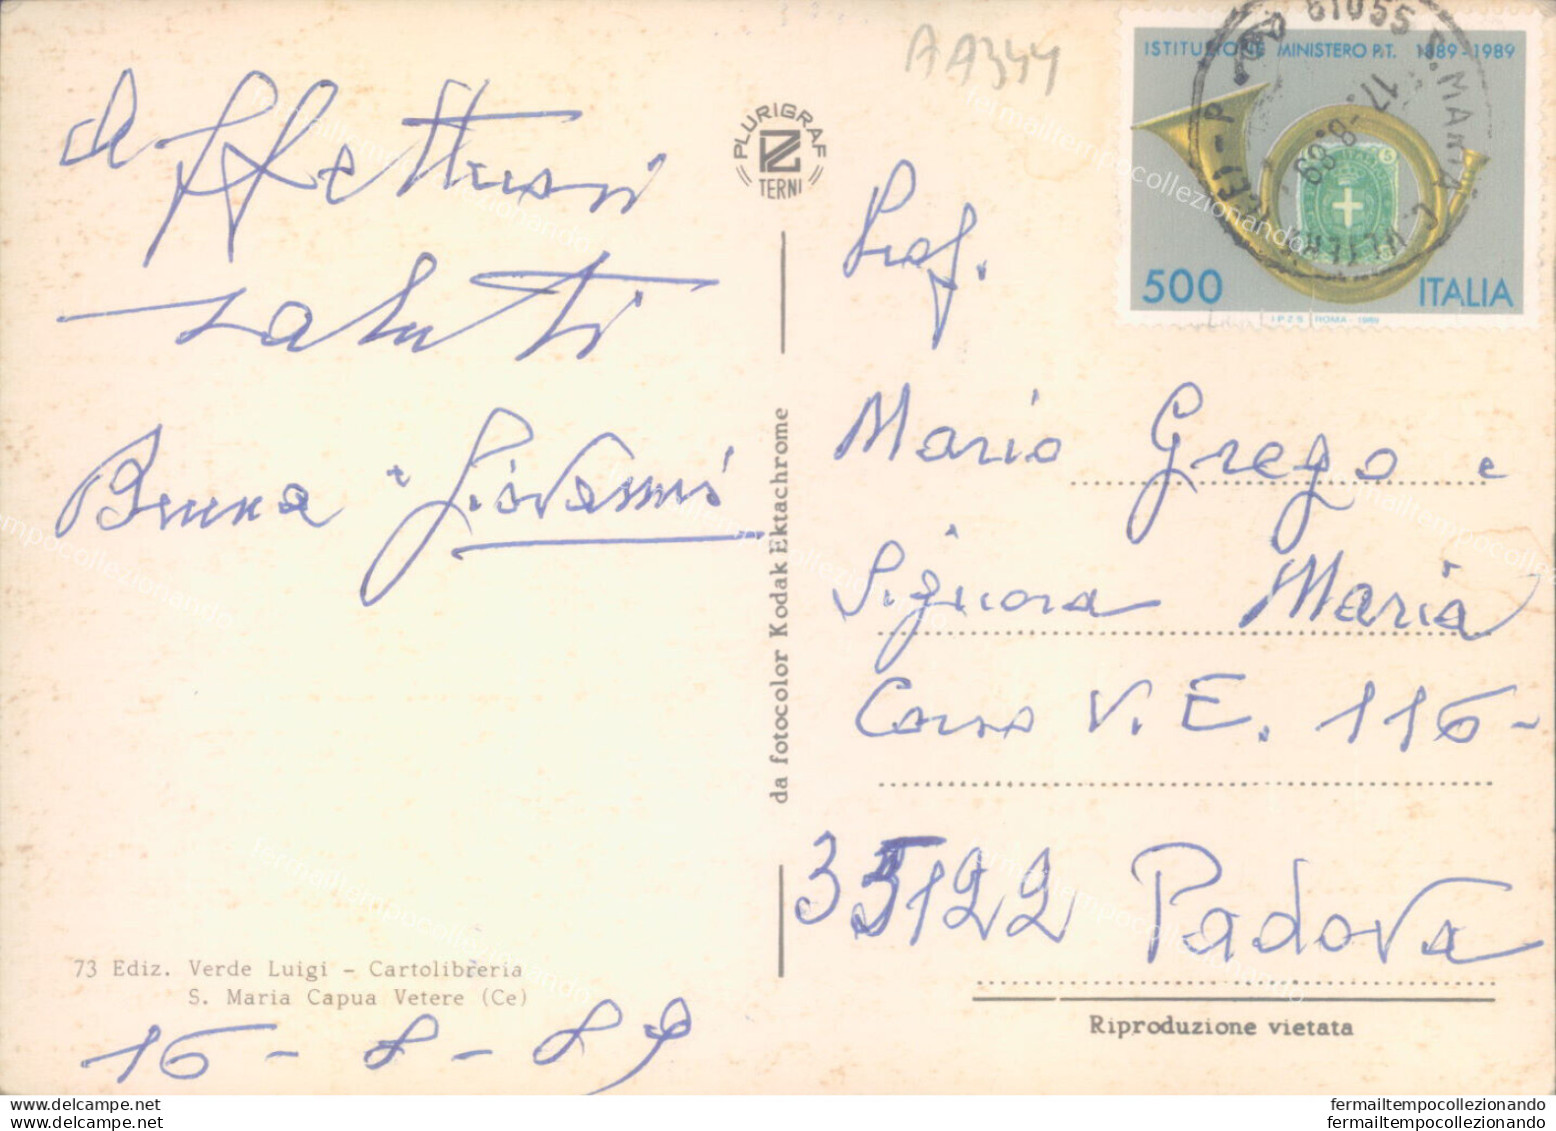 AA344
PLURIGRAF
TERNI
ISTITUZIONE MINISTERO P.T. 1889-1989
500 ITALIA
I.P.Z.S. - ROMA - 1989
81055 S. MARIA C. VETERE
17.8.89
Affettuosi
saluti
Bruna e Giovanni
Prof.
Mario Grego e
Signora Maria
Corso V. E. 116-
35122 Padova
da fotocolor Kodak Ektachrome
73 Ediz. Verde Luigi - Cartolibreria
S. Maria Capua Vetere (Ce)
16-8-89
Riproduzione vietata
fermailtempocollezionando
fermailtempocollezionando
fermailtempocollezionando
fermailtempocollezionando